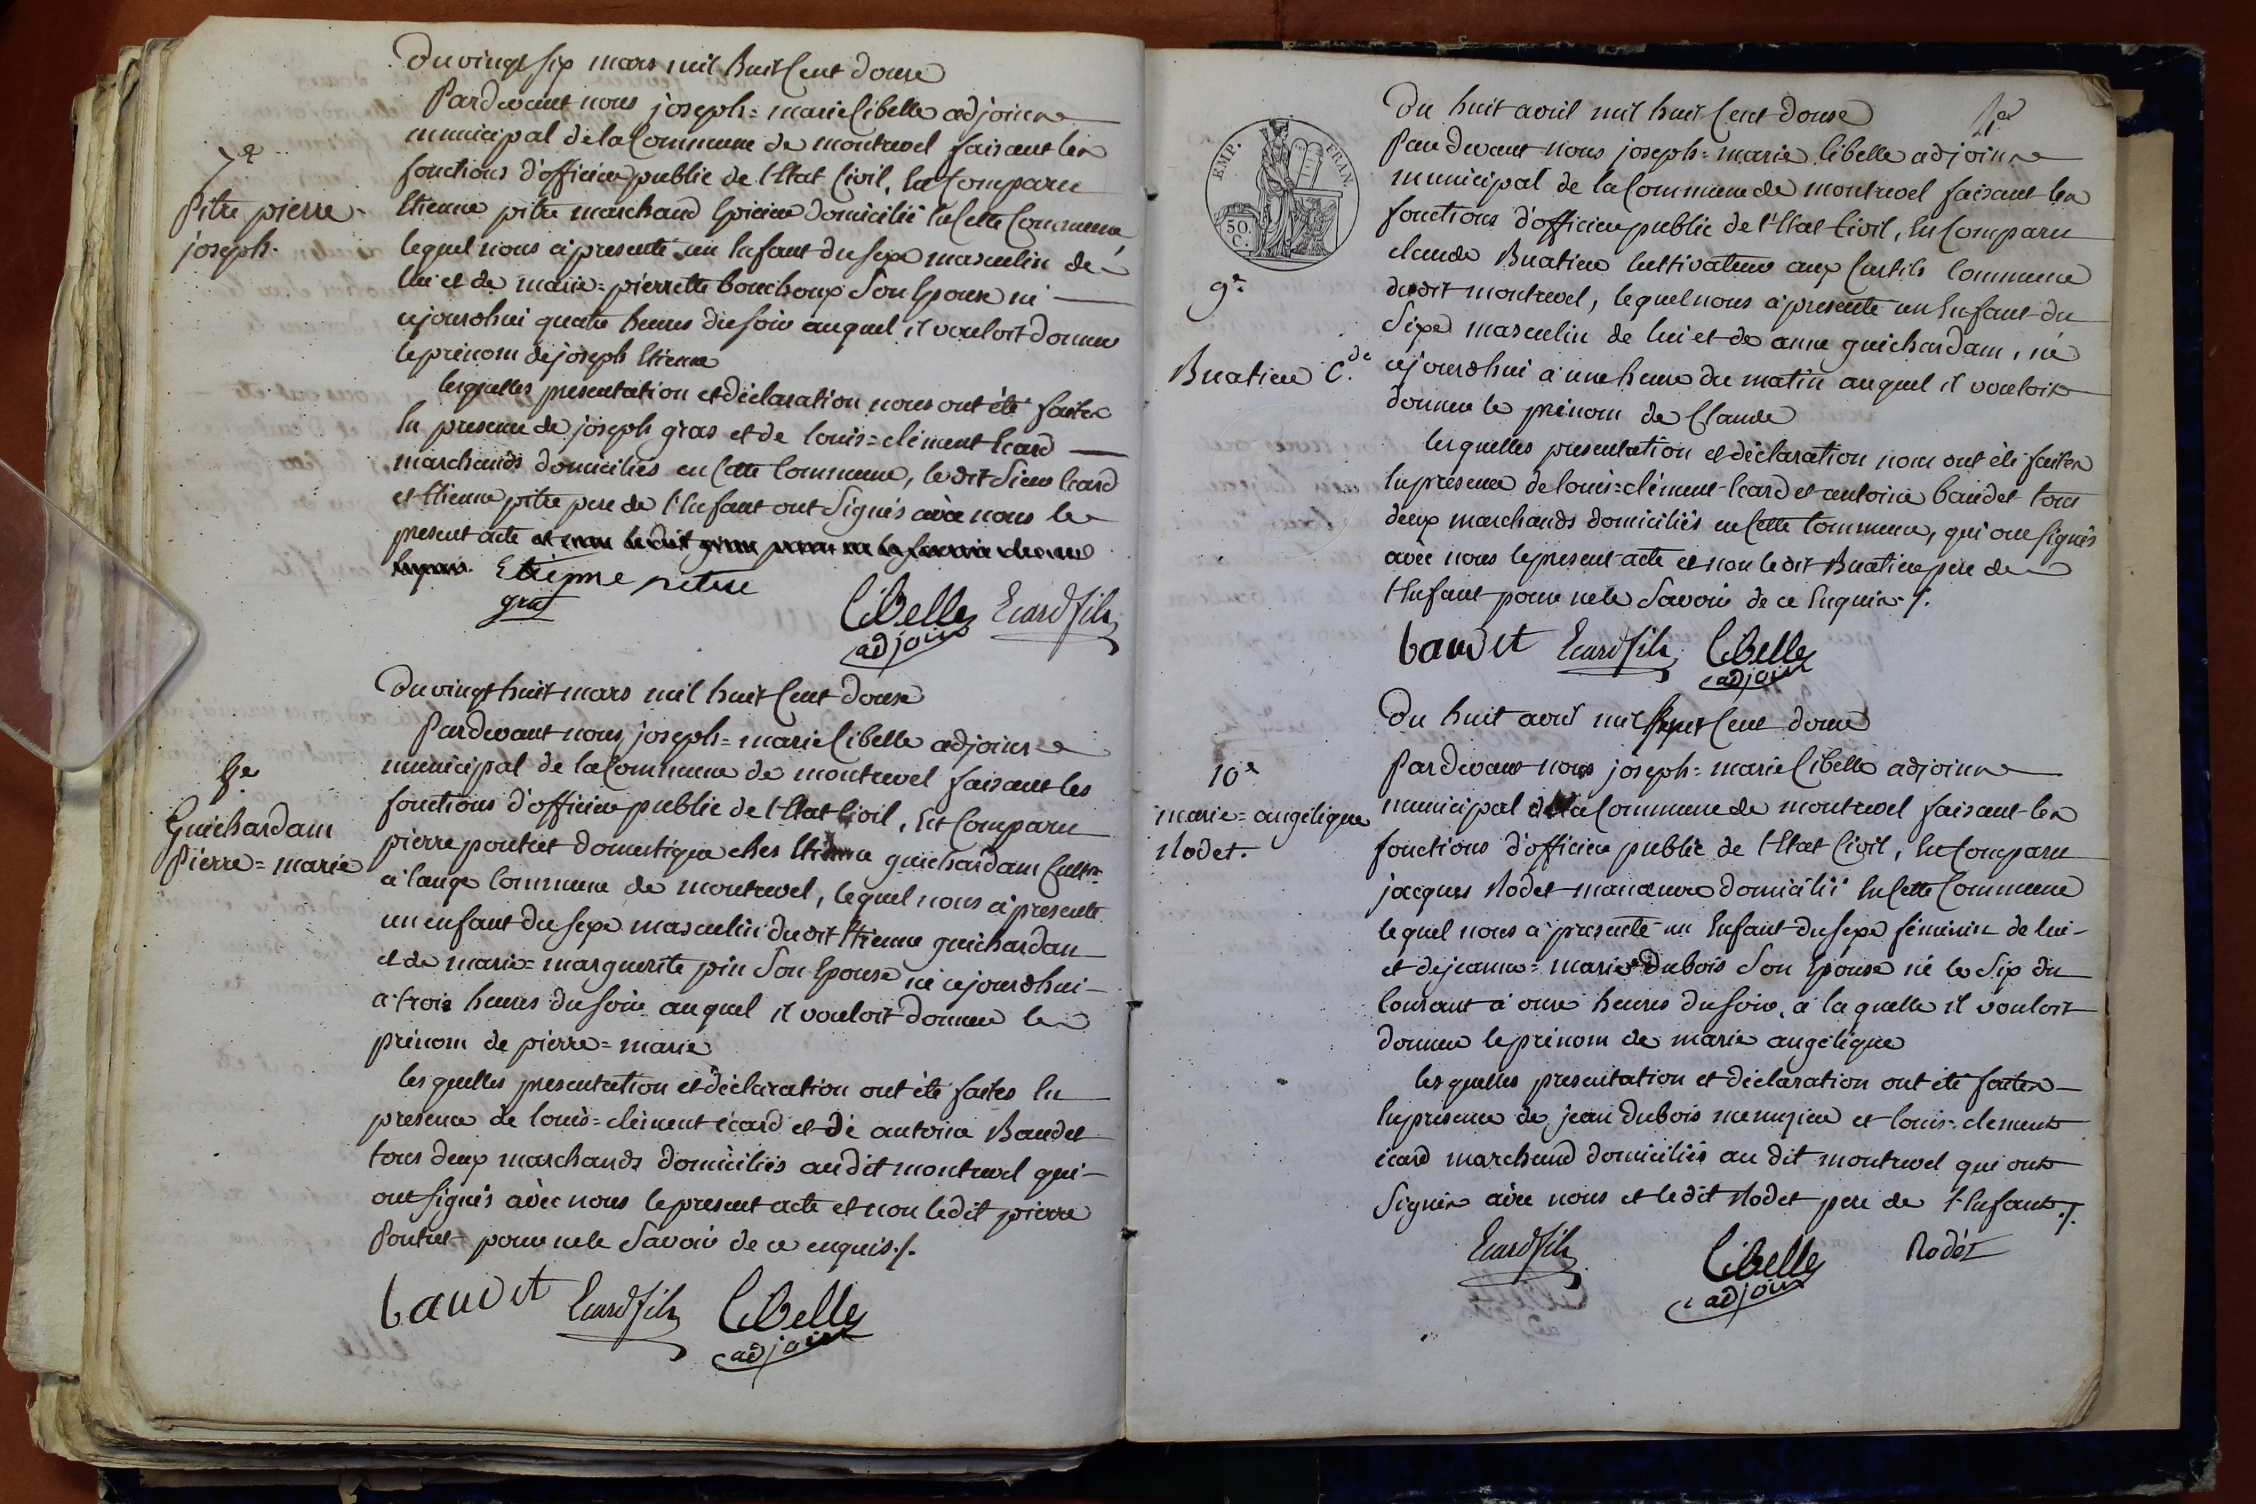 Du vingt six mars mil huit Cent douse
Pardevant nous joseph=marie Libelle adjoint
municipal de la Commune de montrevel faisant les
fonctions d'officier public de l'Etat Civil, En Comparu
7e
Pitre pierre
joseph.
Etienne pitre marchand Epicier domicilié En Cette Commune,
lequel nous a presenté un Enfant du sexe masculin de
lui et de marie=pierrette bouchoux Son Epouse né
cejourdhui quatre heures du soir auquel il vouloit donner
le prénom de joseph Etienne
lesquelles presentation et déclaration nous ont été faites
En presence de joseph gras et de louis=clément Ecard
marchands domiciliés en Cette Commune, le dit Sieur Ecard
et Etienne pitre pere de l'Enfant ont Signés avec nous le
present acte
Etienne pitre
gras
Libelle
adjoint
Ecard fils
Du vingt huit mars mil huit Cent douse
Pardevant nous joseph=marie Libelle adjoint
municipal de la Commune de montrevel faisant les
fonctions d'officier public de l'Etat Civil, Est Comparu
8e
Guichardam
Pierre=marie
pierre pontet domestique ches Etienne guichardam Cultr
a l'ange Commune de montrevel, lequel nous a presenté
un enfant du sexe masculin dudit Etienne guichardan
et de marie=marguerite pin Son Epouse né cejourdhui
a trois heures du soir auquel il vouloit donner le
prénom de pierre=marie
lesquelles presentation et déclaration ont été faites En
presence de louis=clément écard et de antoine Baudet
tous deux marchands domiciliés audit montrevel qui
ont signés avec nous le present acte et non ledit pierre
Pontet pour ne le Savoir de ce enquis./.
baudet
Ecard fils
Libelle
adjoint
EMP. FRAN.
50.
C.
4e
Du huit avril mil huit Cent douse
Pardevant nous joseph=marie libelle adjoint
municipal de la Commune de montrevel faisant les
fonctions d'officier public de l'Etat Civil, En Comparu
9e
Buatier C.de
claude Buatier Cultivateur aux Curtils Commune
dudit montrevel, lequel nous a presenté un Enfant du
Sexe masculin de lui et de anne guichardam, né
cejourdhui a une heure du matin auquel il vouloit
donner le prénom de Claude
lesquelles presentation et déclaration nous ont été faites
En presence de louis=clément Ecard et antoine baudet tous
deux marchands domiciliés en Cette Commune, qui ont signés
avec nous le present acte et non ledit Buatier pere de
l'Enfant pour ne le Savoir de ce Enquis./.
baudet
Ecard fils
Libelle
adjoint
Du huit avril mil huit Cent douse
Pardevant nous joseph=marie Libelle adjoint
municipal de la Commune de montrevel faisant les
fonctions d'officier public de l'Etat Civil, En Comparu
10e
marie=angélique
Nodet.
jacques Nodet manœuvre domicilié En Cette Commune
lequel nous a presenté un Enfant du sexe féminin de lui
et de jeanne=marie Dubois Son Epouse né le Six du
Courant à onse heures du soir, a laquelle il vouloit
donner le prénom de marie angélique
lesquelles presentation et déclaration ont été faites
En presence de jean Dubois menuzier et louis=clement
écard marchand domiciliés au dit montrevel qui ont
Signés avec nous et ledit Nodet pere de l'Enfant./.
Ecard fils
Libelle
adjoint
Nodét